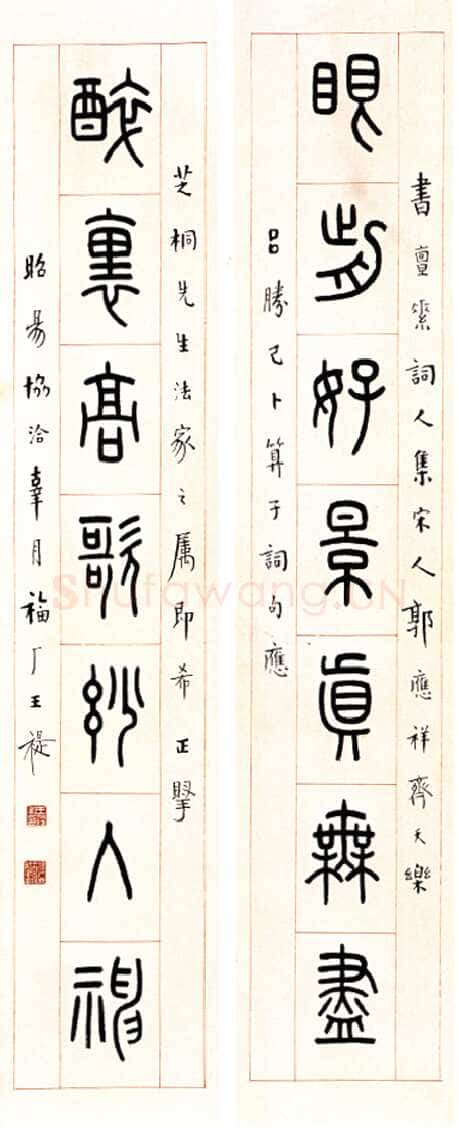 書亶素詞人集宋人郭應祥齊天樂
眼前好景眞無盡
呂勝己卜算子詞句應
芝桐先生法家之属即希正掔
醉裏高歌玅入神
昭昜協洽辜月福厂王禔
Shufawang.CN